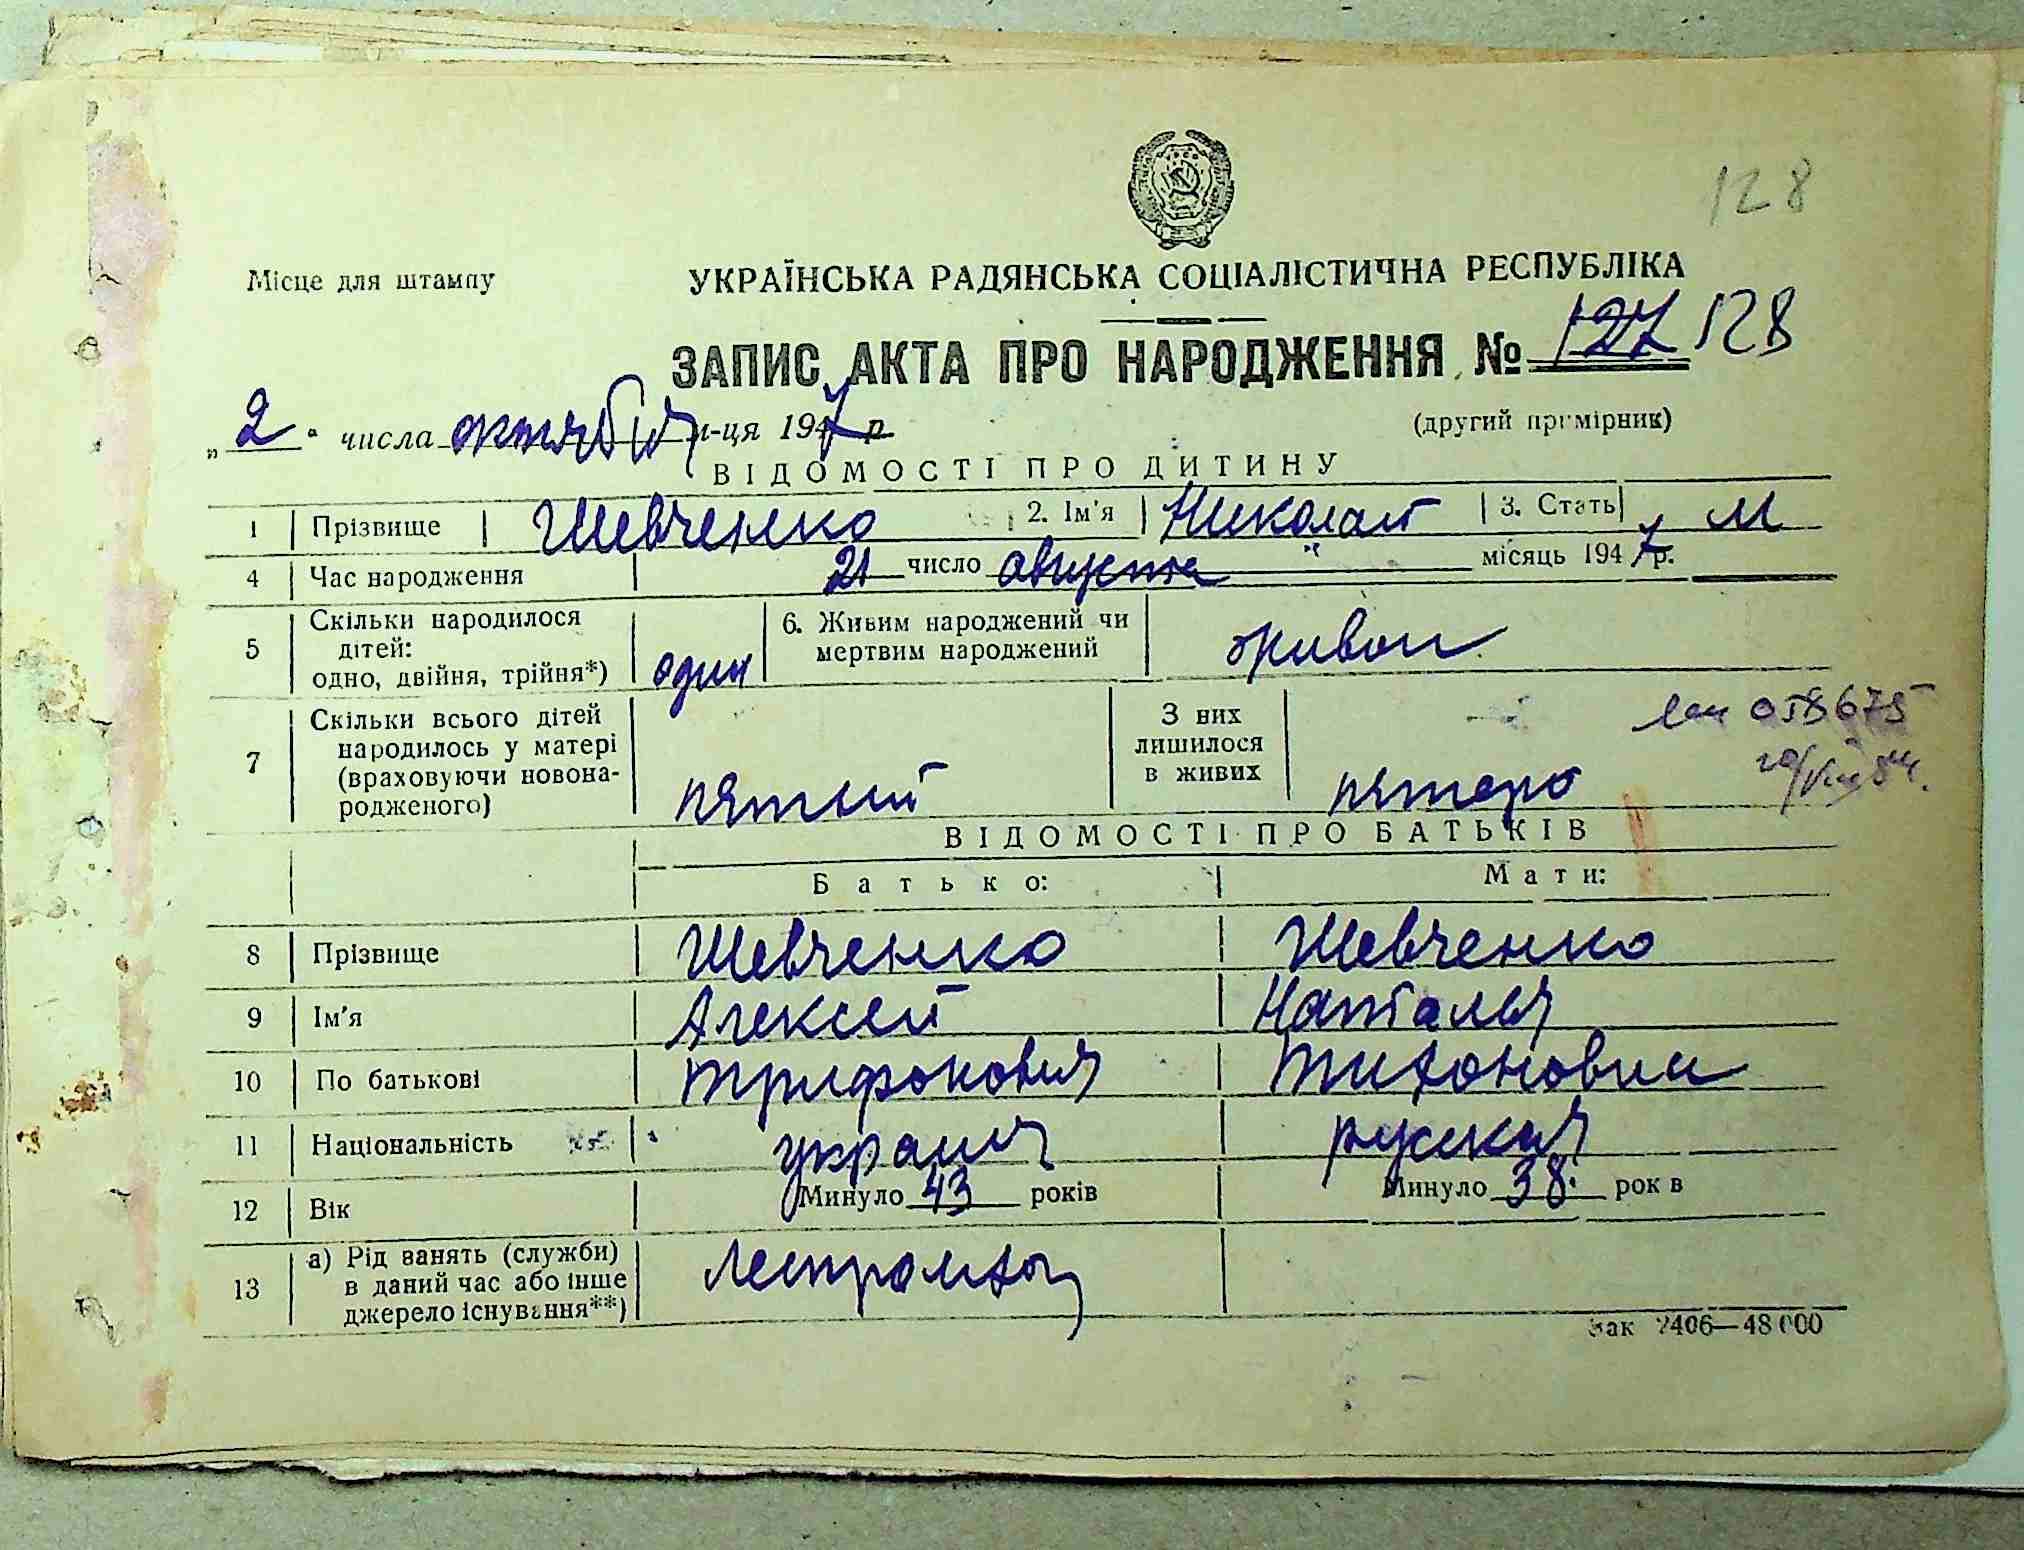 128
Місце для штампу
УКРАЇНСЬКА РАДЯНСЬКА СОЦІАЛІСТИЧНА РЕСПУБЛІКА
ЗАПИС АКТА ПРО НАРОДЖЕННЯ № 127 128
„2" числа октября м-ця 1947 р.
(другий примірник)
ВІДОМОСТІ ПРО ДИТИНУ
1 Прізвище Шевченко 2. Ім'я Николай 3. Стать м
4 Час народження 21 число августа місяць 1947 р.
5 Скільки народилося дітей: одно, двійня, трійня*) один 6. Живим народжений чи мертвим народжений живым
7 Скільки всього дітей народилось у матері (враховуючи новонародженого) пятый З них лишилося в живих пятеро
058675
ВІДОМОСТІ ПРО БАТЬКІВ
Батько: Мати:
8 Прізвище Шевченко Шевченко
9 Ім'я Алексей Наталья
10 По батькові Трифонович Тихоновна
11 Національність украин русская
12 Вік Минуло 43 років Минуло 38 рок в
13 а) Рід занять (служби) в даний час або інше джерело існування**) Леспромхоз
Зак 2406—48000